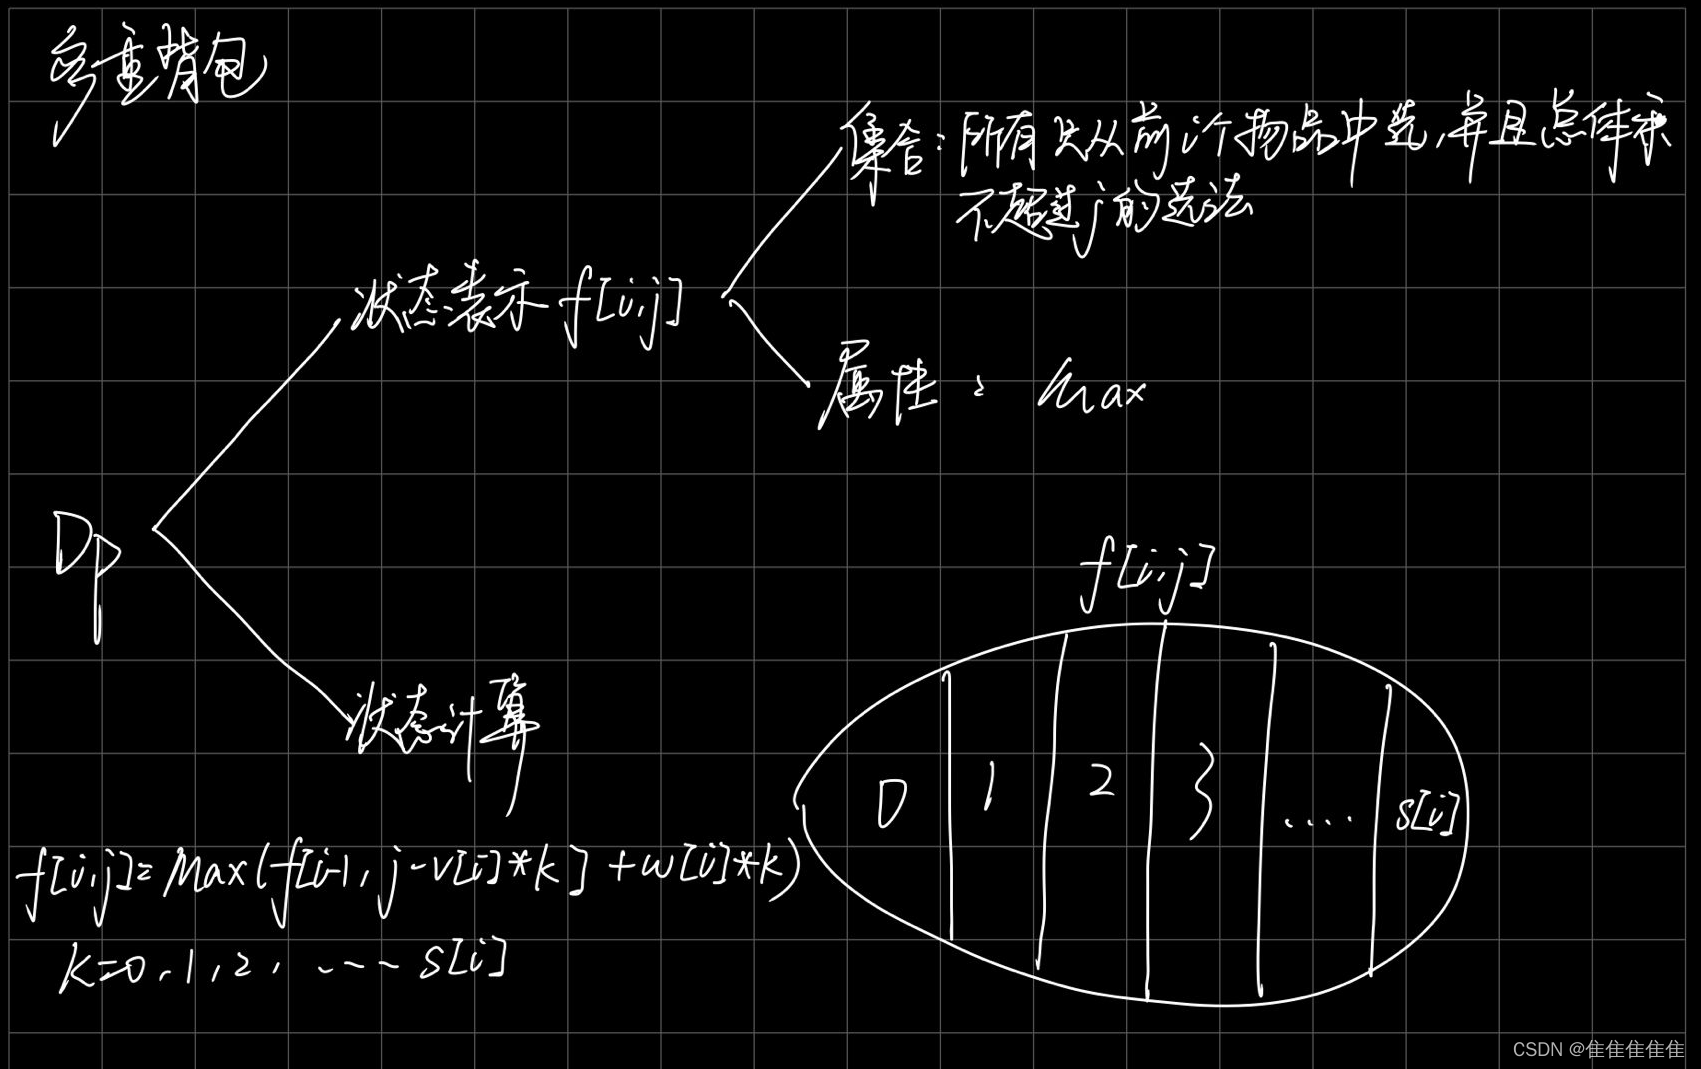 多重背包
集合：所有只从前i个物品中选，并且总体积
不超过j的选法
状态表示 f[i,j]
属性：Max
Dp
f[i,j]
状态计算
0 1 2 3 .... s[i]
f[i,j]=Max(f[i-1,j-v[i]*k]+w[i]*k)
k=0,1,2,....s[i]
CSDN @隹隹隹隹隹